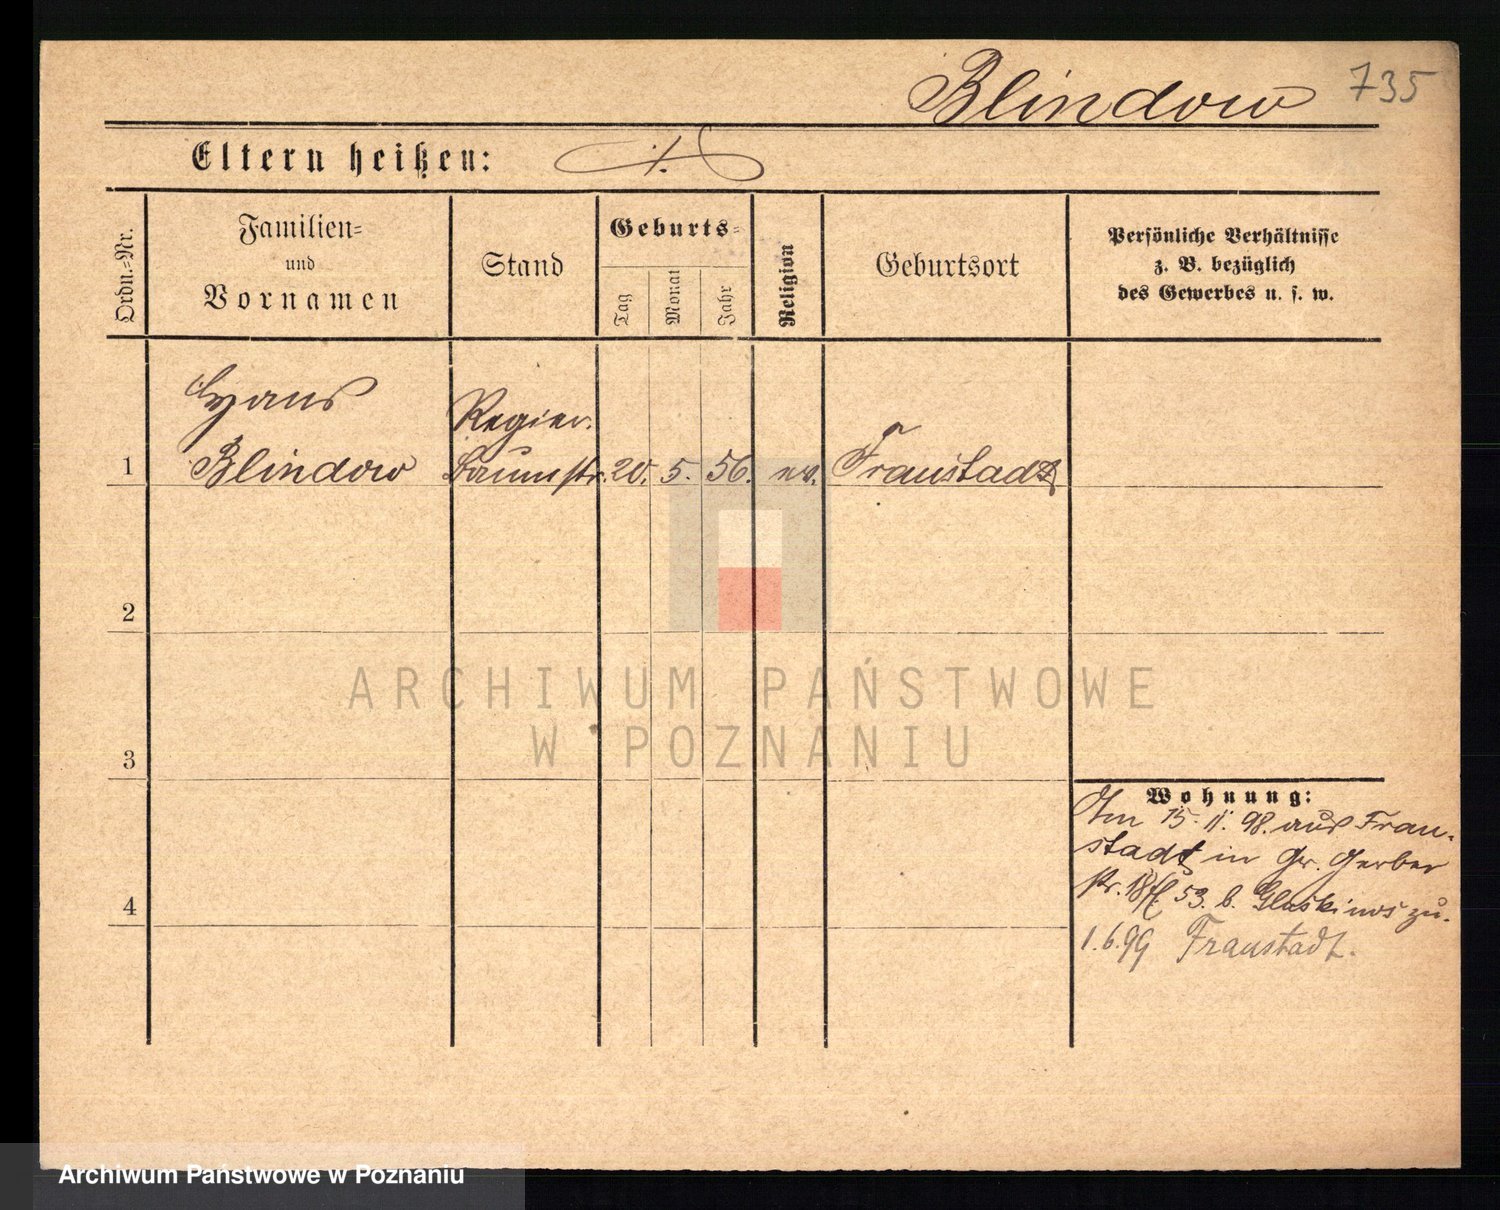 Blindow 735
Eltern heißen:
Ordn.-Nr.
Familien-
und
Vornamen
Stand
Geburts-
Tag
Monat
Jahr
Religion
Geburtsort
Persönliche Verhältnisse
z. B. bezüglich
des Gewerbes u. s. w.
Hans Regier.
1 Blindow Baumstr. 20. 5. 56. ev. Fraustadt
2
ARCHIWUM PAŃSTWOWE
W POZNANIU
3
Wohnung:
Am 15. 11. 98. aus Frau-
stadt in Gr. Gerber
str. 53. b. zu.
4
1.6.99 Fraustadt.
Archiwum Państwowe w Poznaniu